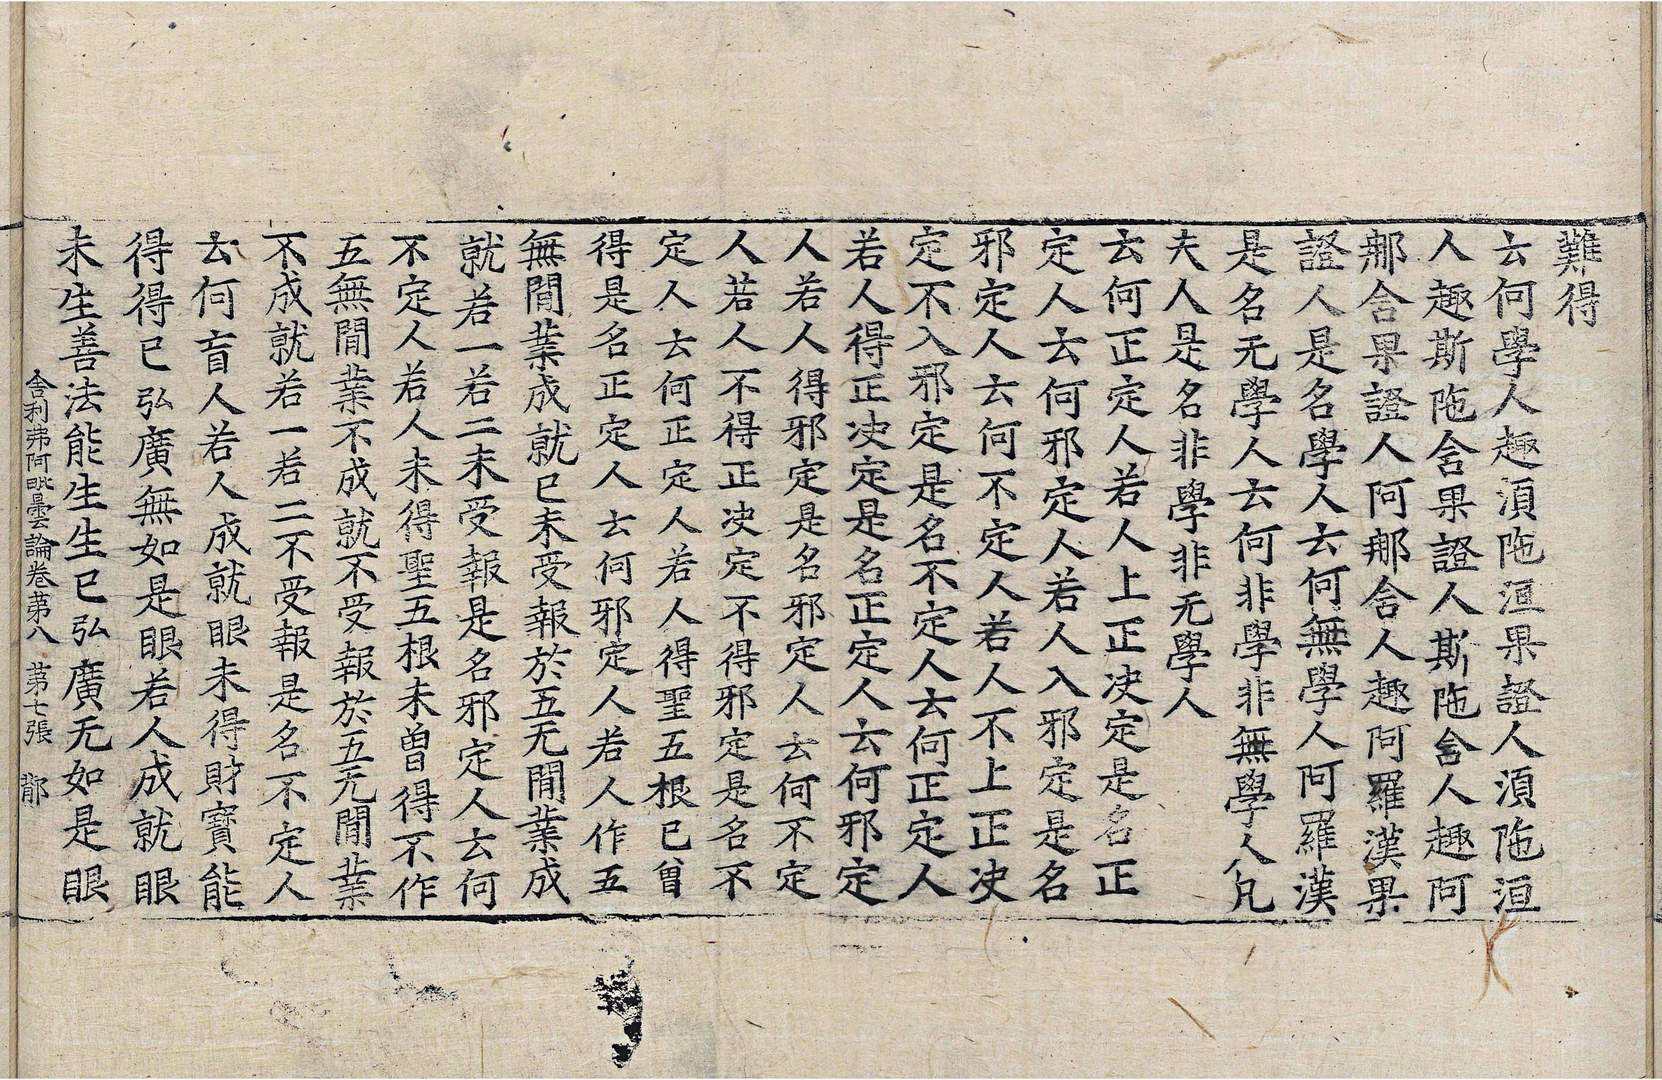 難得
云何學人趣湏陁洹果證人湏陁洹
人趣斯陁含果證人斯陁含人趣阿
那含果證人阿那含人趣阿羅漢果
證人是名學人云何無學人阿羅漢
是名无學人云何非學非無學人凡
夫人是名非學非无學人
云何正定人若人上正决定是名正
定人云何邪定人若人入邪定是名
邪定人云何不定人若人不上正决
定不入邪定是名不定人云何正定人
若人得正决定是名正定人云何邪定
人若人得邪定是名邪定人云何不定
人若人不得正决定不得邪定是名不
定人云何正定人若人得聖五根已曾
得是名正定人云何邪定人若人作五
無間業成就已未受報於五无間業成
就若一若二未受報是名邪定人云何
不定人若人未得聖五根未曾得不作
五無間業不成就不受報於五无間業
不成就若一若二不受報是名不定人
云何盲人若人成就眼未得財寶能
得得已弘廣無如是眼若人成就眼
未生善法能生生已弘廣无如是眼
舍利弗阿毗曇論卷苐八 苐七張 那